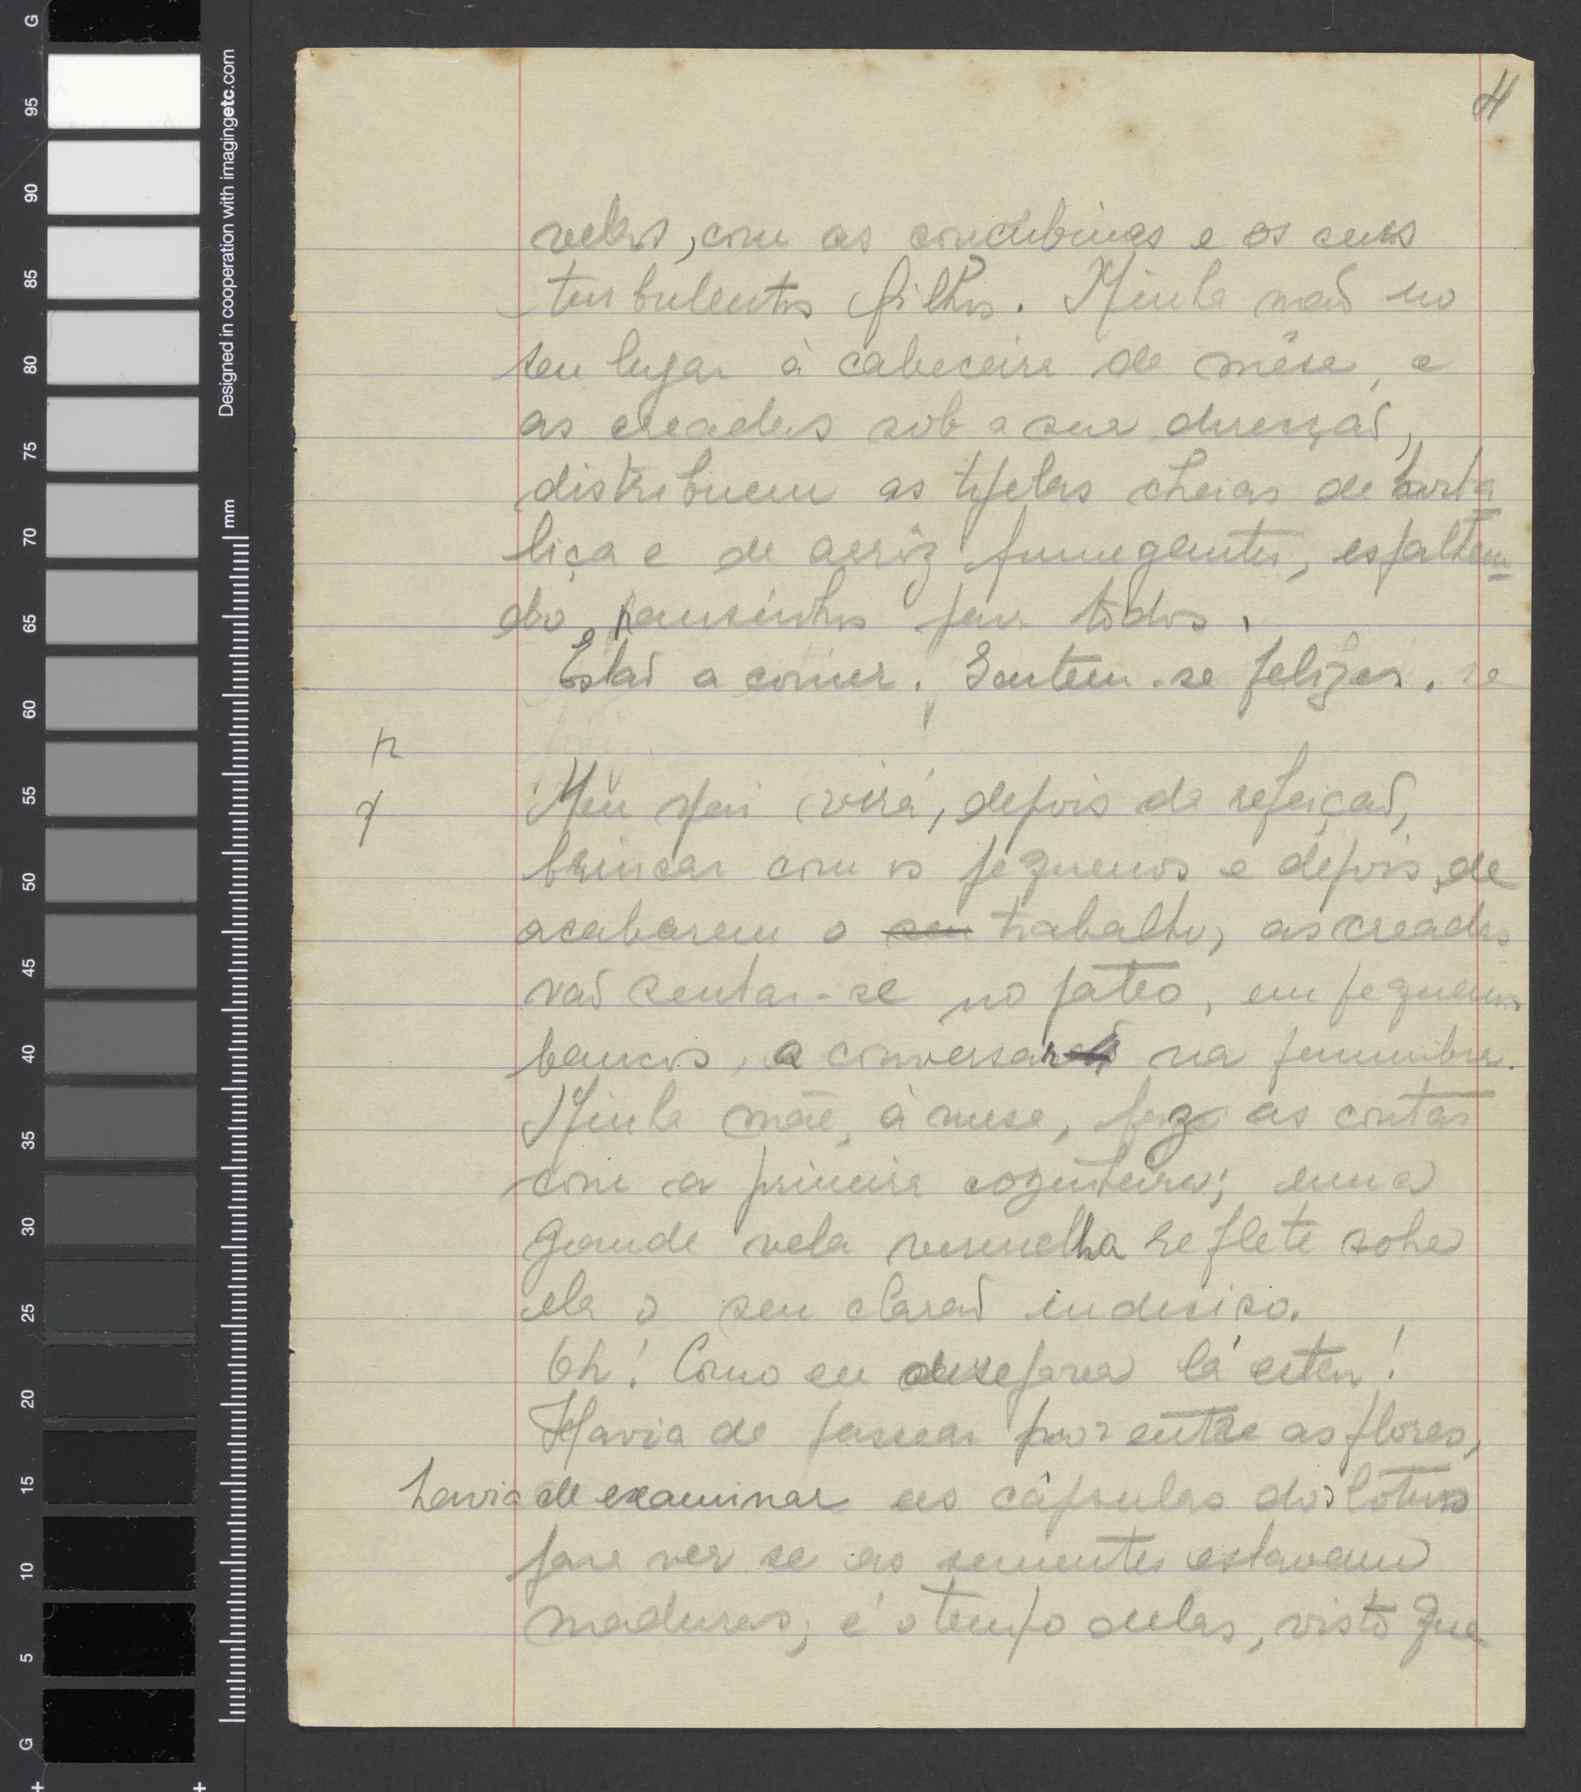 G
95
90
85
80
75
70
65
60
55
50
45
40
35
30
25
20
15
10
5
G
Designed in cooperation with imagingetc.com
mm
4
velas, com as concubinas e os seus
turbulentos filhos. Minha mãe no
seu lugar à cabeceira da mêsa, e
as creadas sob a sua direcção,
distribuem as tijelas cheias de horta
liça e de arrôz fumegantes, espalhan-
do pausinhos para todos.
Estão a comer. Sentem-se felizes.
Meu pai virá, depois da refeição,
brincar com os pequenos e depois de
acabarem o seu trabalho, as creadas
vão sentar-se no páteo, em pequenos
bancos, a conversar na penumbra.
Minha mãe, à mesa, faz as contas
com a primeira cozinheira; uma
grande vela vermelha reflete sobre
ela o seu clarão indeciso.
Oh! Como eu desejava lá estar!
Havia de passear por entre as flores,
havia de examinar as cápsulas dos lótus
para ver se as sementes estavam
maduras; é o tempo delas, visto que